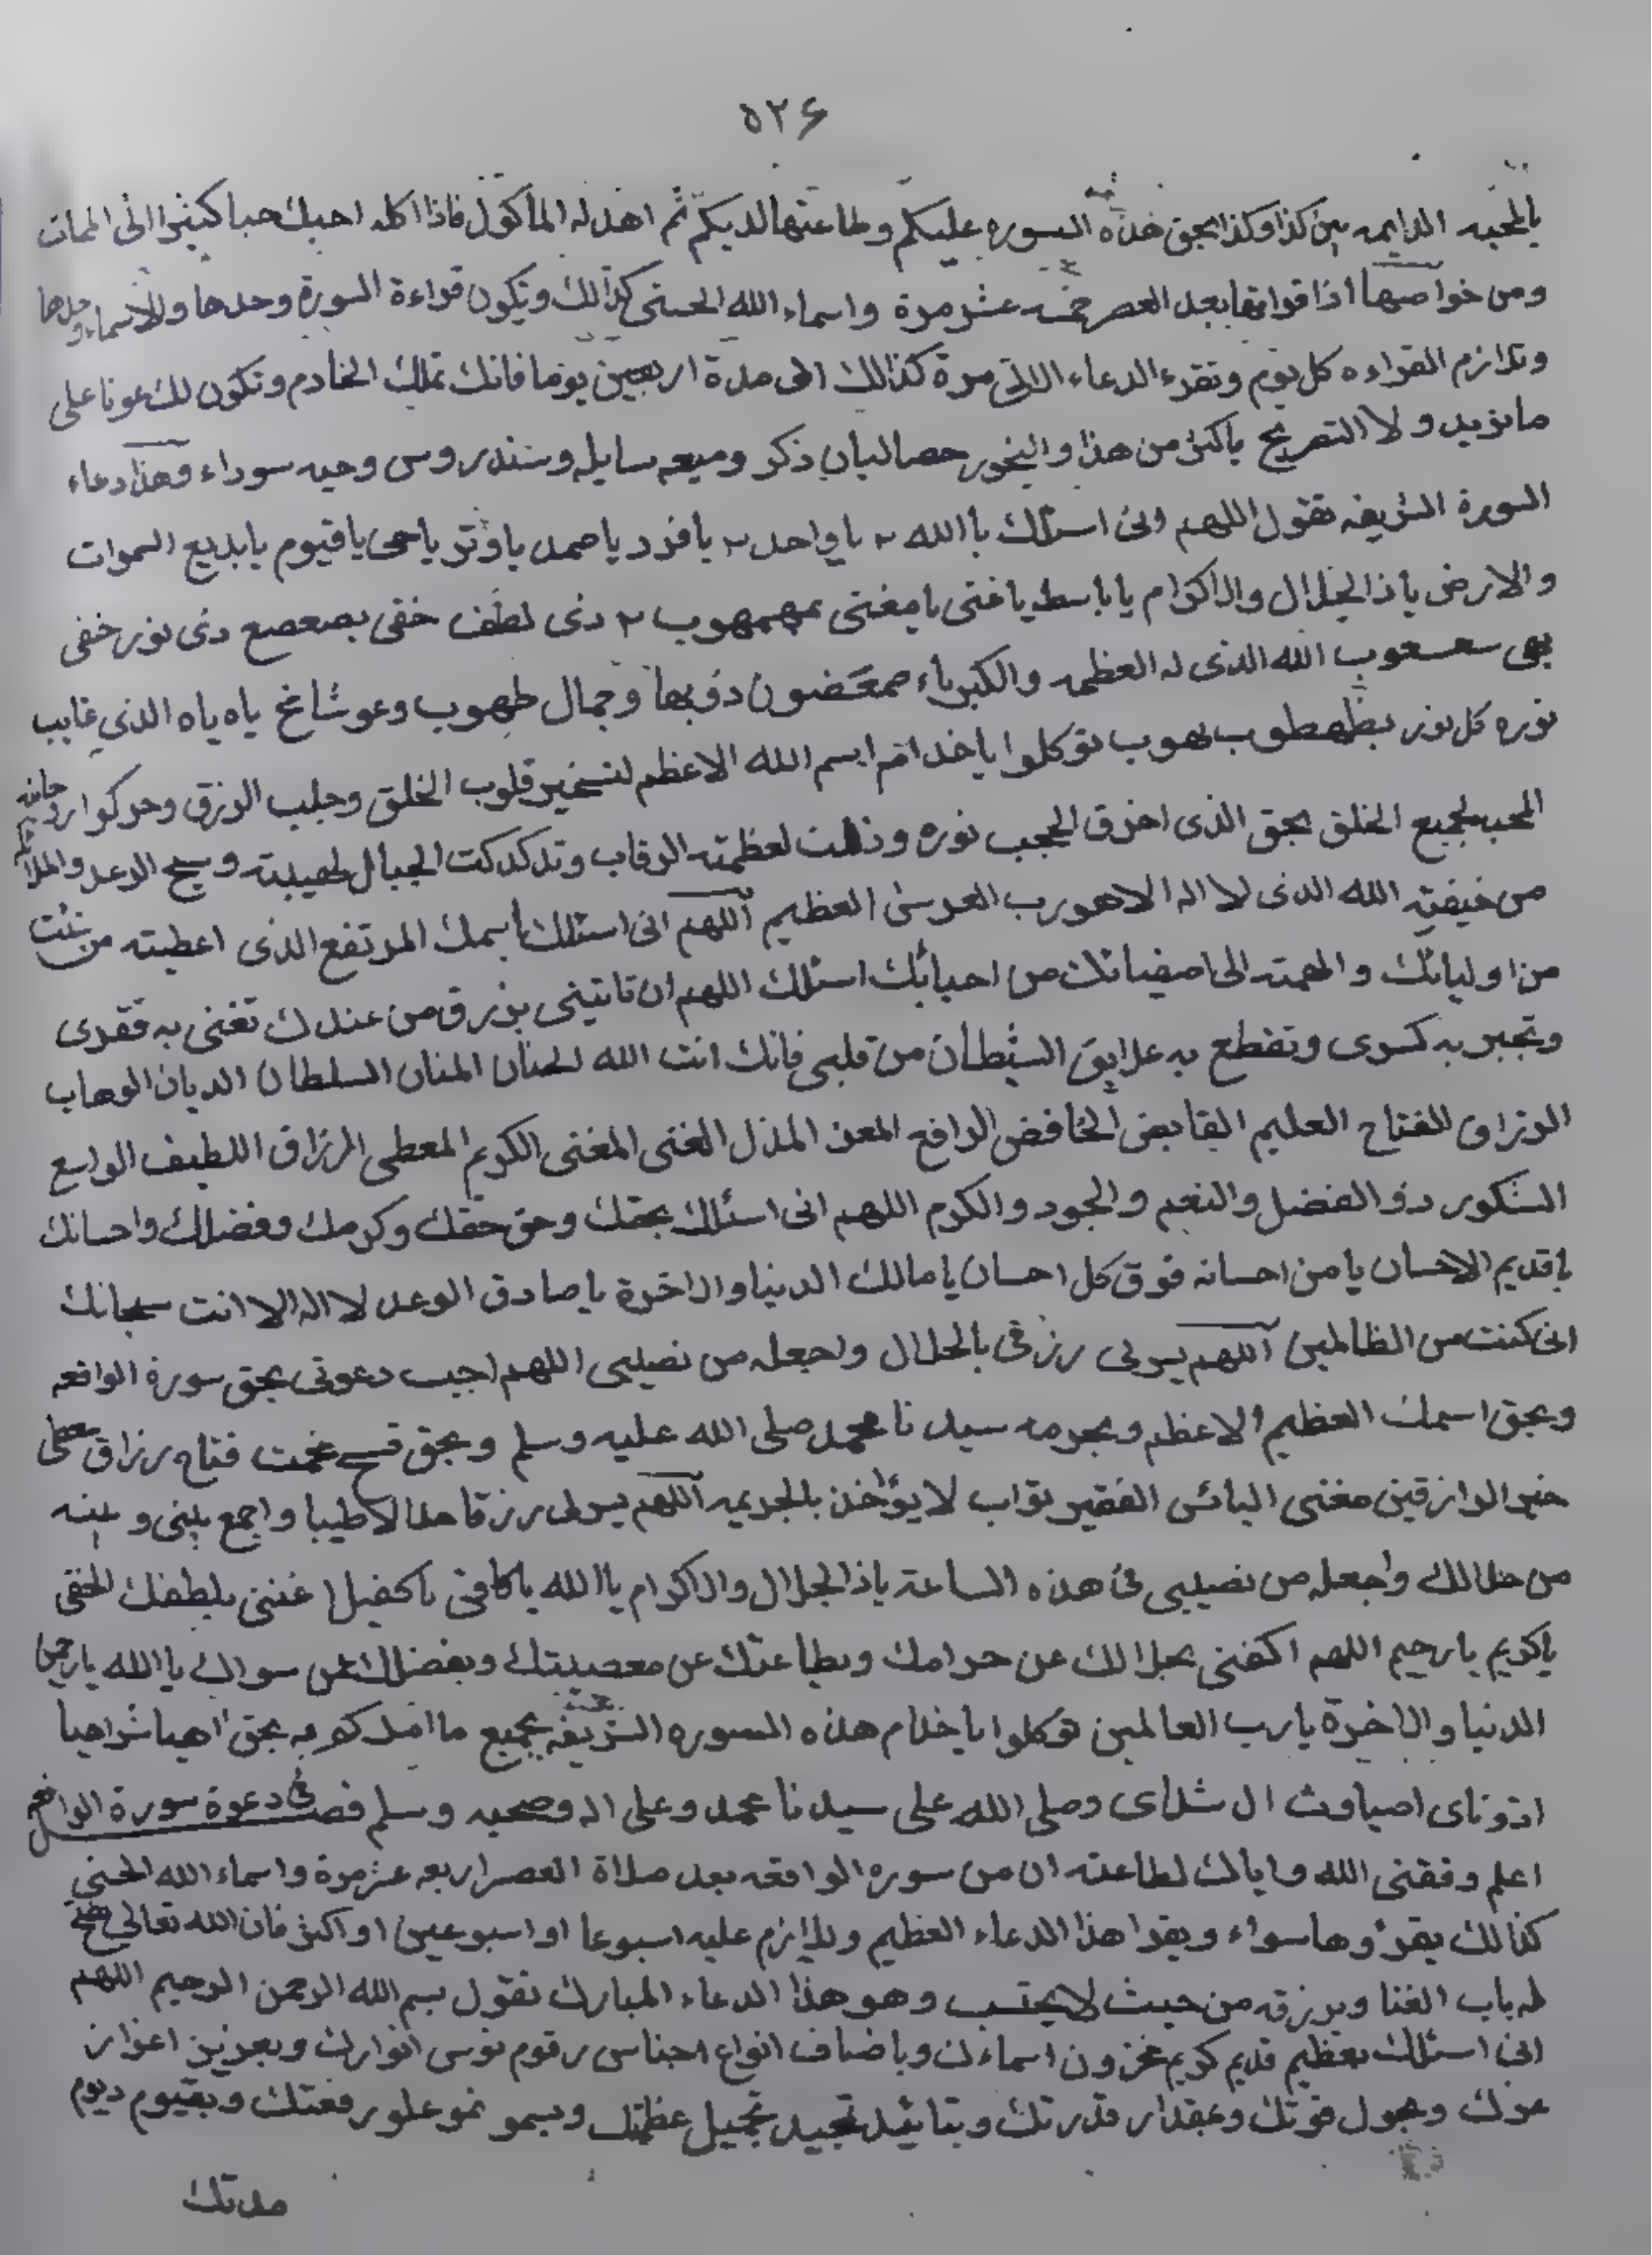 ٥٢٦
بالمحبه الدايمه بين كذا وكذا بحق هذه السوره عليكم وطاعتها لديكم ثم اهد له المأكول فاذا اكله احبك حبا كثيرا الى الممات
ومن خواصها اذا قراتها بعد العصر عشر مرة واسماء الله الحسنى كذالك وتكون قراءة السورة وحدها والاسماء وحدها
وتلازم القراءه كل يوم وتقرء الدعاء الاتى مرة كذالك الى مدة اربعين يوما فانك تملك الخادم وتكون لك عونا على
ما تريد ولا التصريح باكثر من هذا والبخور حصا لبان ذكر وميعه سايله وسندروس وحبه سوداء وهذا دعاء
السورة الشريفه تقول اللهم انى اسئلك يا الله ٢ يا واحد ٢ يا فرد يا صمد يا وتر يا حى يا قيوم يا بديع السموات
والارض يا ذا الجلال والاكرام يا باسط يا غنى يا مغنى بمهمهوب ٢ ذى لطف خفى بصعصع ذى نور خفى
بهى سعسعوب الله الذى له العظمه والكبرياء ذو بها وجمال طهوب وعوشانخ ياه ياه الذى غايب
نوره كل نور بطهطوب لهوب توكلوا يا خدام اسم الله الاعظم لتسخير قلوب الخلق وجلب الرزق وحركوا
المحبه لجميع الخلق بحق الذى احرق الحجب نوره وذلت لعظمته الرقاب وتدكدكت الجبال لهيبته وسبح الرعد
من خيفته الله الذى لا اله الا هو رب العرش العظيم اللهم انى اسئلك باسمك المرتفع الذى اعطيته من شئت
من اوليائك والهمته الى اصفيائك من احبائك اسئلك اللهم ان تاتينى برزق من عندك تغنى به فقرى
وتجبر به كسرى وتقطع به علايق الشيطان من قلبى فانك انت الله الحنان المنان السلطان الديان الوهاب
الرزاق الفتاح العليم القابض الخافض الرافع المعز المذل الغنى المغنى الكريم المعطى الرزاق اللطيف الواسع
الشكور ذو الفضل والنعم والجود والكرم اللهم انى اسئلك بحقك وحق حقك وكرمك وفضلك واحسانك
يا قديم الاحسان يا من احسانه فوق كل احسان يا مالك الدنيا والاخرة يا صادق الوعد لا اله الا انت سبحانك
انى كنت من الظالمين اللهم يسر لى رزقى بالحلال واجعله من نصيبى اللهم اجيب دعوتى بحق سورة الواقعه
وبحق اسمك العظيم الاعظم وبحرمه سيدنا محمد صلى الله عليه وسلم وبحق فتاح رزاق
خير الرازقين مغنى البائس الفقير تواب لا يؤاخذ بالجريمه اللهم يسر لى رزقا حلالا طيبا واجمع بينى وبينه
من حلالك واجعله من نصيبى فى هذه الساعة يا ذا الجلال والاكرام يا الله يا كافى يا كفيل اغننى بلطفك الخفى
يا كريم يا رحيم اللهم اكفنى بحلالك عن حرامك وبطاعتك عن معصيتك وبفضلك عن سواك يا الله يا رحمن
الدنيا والاخرة يا رب العالمين توكلوا يا خدام هذه السوره الشريفه بجميع ما امركم به بحق اهيا شراهيا
ادوناى اصباوث ال شداى وصلى الله على سيدنا محمد وعلى اله وصحبه وسلم فصل فى دعوة سورة الواقعه
اعلم وفقنى الله واياك لطاعته ان من سوره الواقعه بعد صلاة العصر اربعه عشر مرة واسماء الله الحسنى
كذالك يقرؤها سواء ويقرا هذا الدعاء العظيم ويلازم عليه اسبوعا او اسبوعين او اكثر فان الله تعالى يفتح
له باب الغنا ويرزقه من حيث لا يحتسب وهو هذا الدعاء المبارك تقول بسم الله الرحمن الرحيم اللهم
انى اسئلك بعظيم قديم كريم مخزون اسماءك وباضاف انواع اجناس رقوم نوس انوارك وبعزيز اعزاز
عزك وبحول قوتك وبمقدار قدرتك وبتائيد تحميد تجميل عظمتك وبسمو نمو علو رفعتك وبقيوم ديوم
مدتك